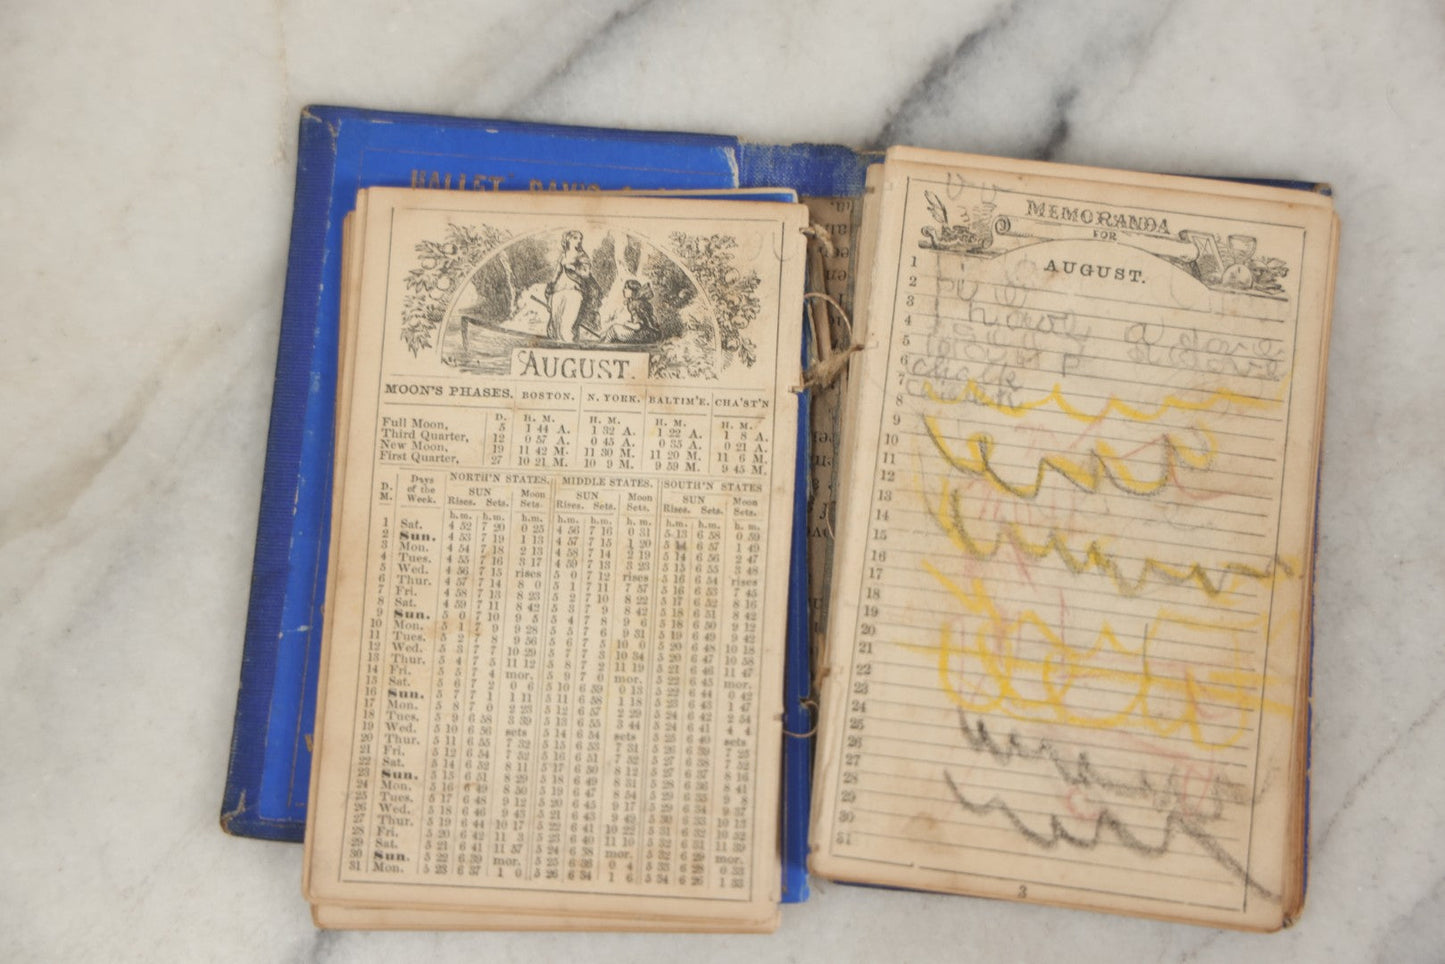 HALLET, DAVIS
AUGUST.
MOON'S PHASES. BOSTON. N. YORK. BALTIM'E. CHA'ST'N
D. H. M. H. M. H. M. H. M.
Full Moon, 5 1 44 A. 1 32 A. 1 22 A. 1 8 A.
Third Quarter, 12 0 57 A. 0 45 A. 0 35 A. 0 21 A.
New Moon, 19 11 42 M. 11 30 M. 11 20 M. 11 6 M.
First Quarter, 27 10 21 M. 10 9 M. 9 59 M. 9 45 M.
D. M. Days of the Week. NORTH'N STATES. MIDDLE STATES. SOUTH'N STATES
SUN Rises. Sets. Moon Sets. SUN Rises. Sets. Moon Sets. SUN Rises. Sets. Moon Sets.
h.m. h.m. h.m. h.m. h.m. h.m. h.m. h.m. h.m.
1 Sat. 4 52 7 20 0 25 4 56 7 16 0 31 5 13 6 58 0 59
2 Sun. 4 53 7 19 1 13 4 57 7 15 1 20 5 14 6 57 1 49
3 Mon. 4 54 7 18 2 13 4 58 7 14 2 19 5 14 6 56 2 47
4 Tues. 4 55 7 16 3 17 4 59 7 13 3 23 5 15 6 55 3 48
5 Wed. 4 56 7 15 rises 5 0 7 12 rises 5 16 6 54 rises
6 Thur. 4 57 7 14 8 0 5 1 7 11 7 57 5 16 6 53 7 45
7 Fri. 4 58 7 13 8 23 5 2 7 10 8 22 5 17 6 52 8 16
8 Sat. 4 59 7 11 8 42 5 3 7 9 8 42 5 18 6 51 8 42
9 Sun. 5 0 7 10 9 5 5 4 7 8 9 6 5 18 6 50 9 12
10 Mon. 5 1 7 9 9 28 5 5 7 6 9 31 5 19 6 49 9 42
11 Tues. 5 2 7 8 9 56 5 6 7 5 10 0 5 20 6 48 10 18
12 Wed. 5 3 7 7 10 29 5 7 7 3 10 34 5 20 6 47 10 58
13 Thur. 5 4 7 5 11 12 5 8 7 2 11 19 5 21 6 46 11 47
14 Fri. 5 5 7 4 mor. 5 9 7 0 mor. 5 22 6 45 mor.
15 Sat. 5 6 7 2 0 6 5 10 6 59 0 13 5 22 6 44 0 42
16 Sun. 5 7 7 1 1 11 5 11 6 58 1 18 5 23 6 43 1 47
17 Mon. 5 8 7 0 2 23 5 12 6 57 2 29 5 24 6 42 2 54
18 Tues. 5 9 6 58 3 39 5 13 6 55 3 44 5 24 6 41 4 4
19 Wed. 5 10 6 56 sets 5 14 6 54 sets 5 25 6 40 sets
20 Thur. 5 11 6 55 7 32 5 15 6 53 7 31 5 26 6 39 7 25
21 Fri. 5 12 6 54 7 52 5 16 6 51 7 52 5 26 6 38 7 52
22 Sat. 5 14 6 52 8 11 5 17 6 50 8 12 5 27 6 37 8 16
23 Sun. 5 15 6 51 8 29 5 18 6 49 8 31 5 28 6 36 8 41
24 Mon. 5 16 6 49 8 50 5 19 6 47 8 54 5 28 6 35 9 8
25 Tues. 5 17 6 48 9 12 5 20 6 45 9 17 5 29 6 34 9 37
26 Wed. 5 18 6 46 9 43 5 21 6 43 9 42 5 30 6 33 10 13
27 Thur. 5 19 6 44 10 17 5 22 6 41 10 22 5 31 6 32 10 52
28 Fri. 5 20 6 42 11 3 5 23 6 40 11 10 5 32 6 31 11 39
29 Sat. 5 21 6 41 11 57 5 24 6 38 mor. 5 32 6 29 mor.
30 Sun. 5 22 6 39 mor. 5 25 6 36 0 4 5 33 6 28 0 33
31 Mon. 5 23 6 37 1 0 5 26 6 34 1 6 5 34 6 26 1 33
MEMORANDA
FOR
AUGUST.
1
2
3
4 I have a dove
5
6 chalk
7
8
9
10
11
12
13
14
15
16
17
18
19
20
21
22
23
24
25
26
27
28
29
30
31
3